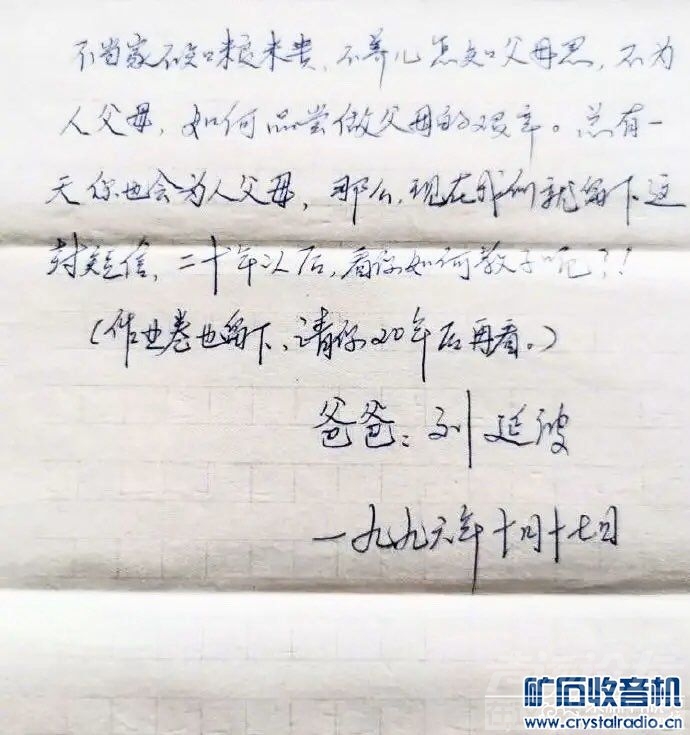 不当家不知粮米贵，不养儿怎知父母恩，不为
人父母，如何品尝做父母的艰辛。总有一
天你也会为人父母，那么，现在我们就留下这
封短信，二十年以后，看你如何教子呢？！
（作业卷也留下，请你20年后再看。）
爸爸：刘延波
一九九六年十月十七日
矿石收音机
www.crystalradio.cn